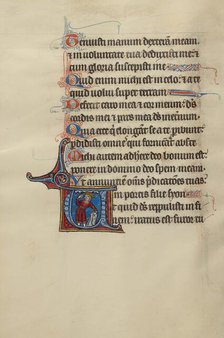 Tenuisti manum dexteram meam
et in voluntate tua deduxisti me: et
cum gloria suscepisti me
Quid enim michi est in celo: et a te
quid volui super terram
Defecit caro mea et cor meum: deus
cordis mei et pars mea deus in
Quia ecce q elongant se a te peribunt:
pdidisti omnes qui fornicant abs te
Michi autem adherere deo bonum est:
ponere in domino deo spem meam
Ut annuntie omnes pdicatoes tuas
in portis filie syon
Ut quid deus repulisti in fi
nem: iratus est furor tu